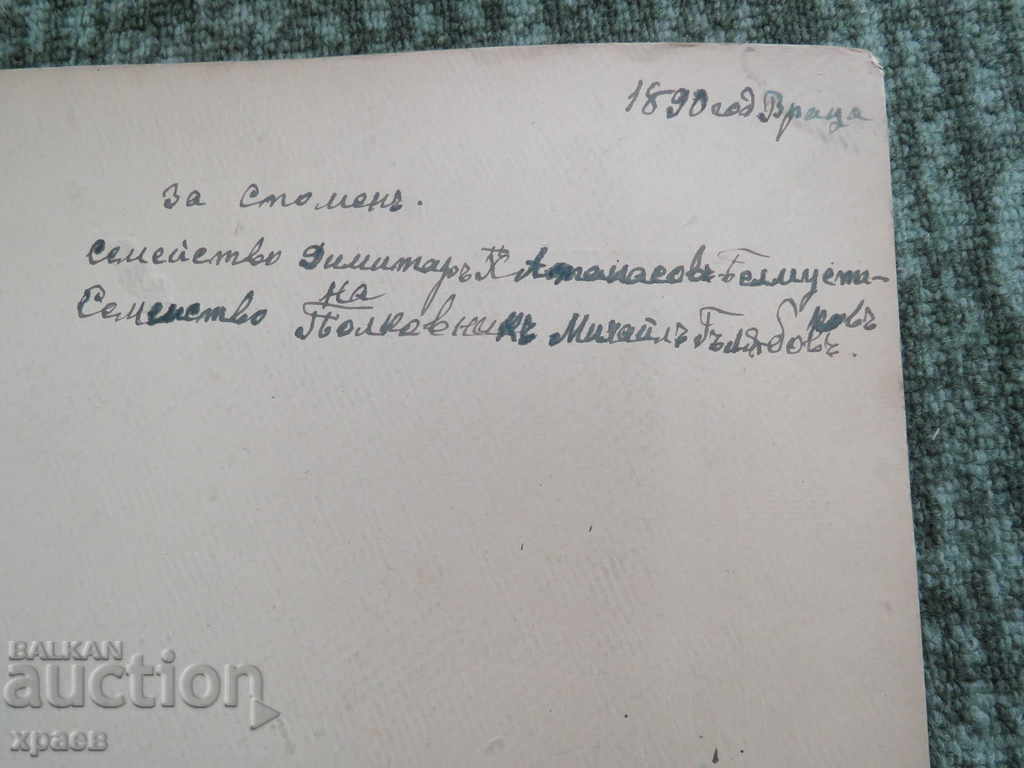 1890 год Враца
за споменъ.
семейство Димитаръ Х Атанасовъ Белмусти-
ровъ
Семейство на Полковникъ Михайлъ Гълѫбовъ.
BALKAN
auction
храев